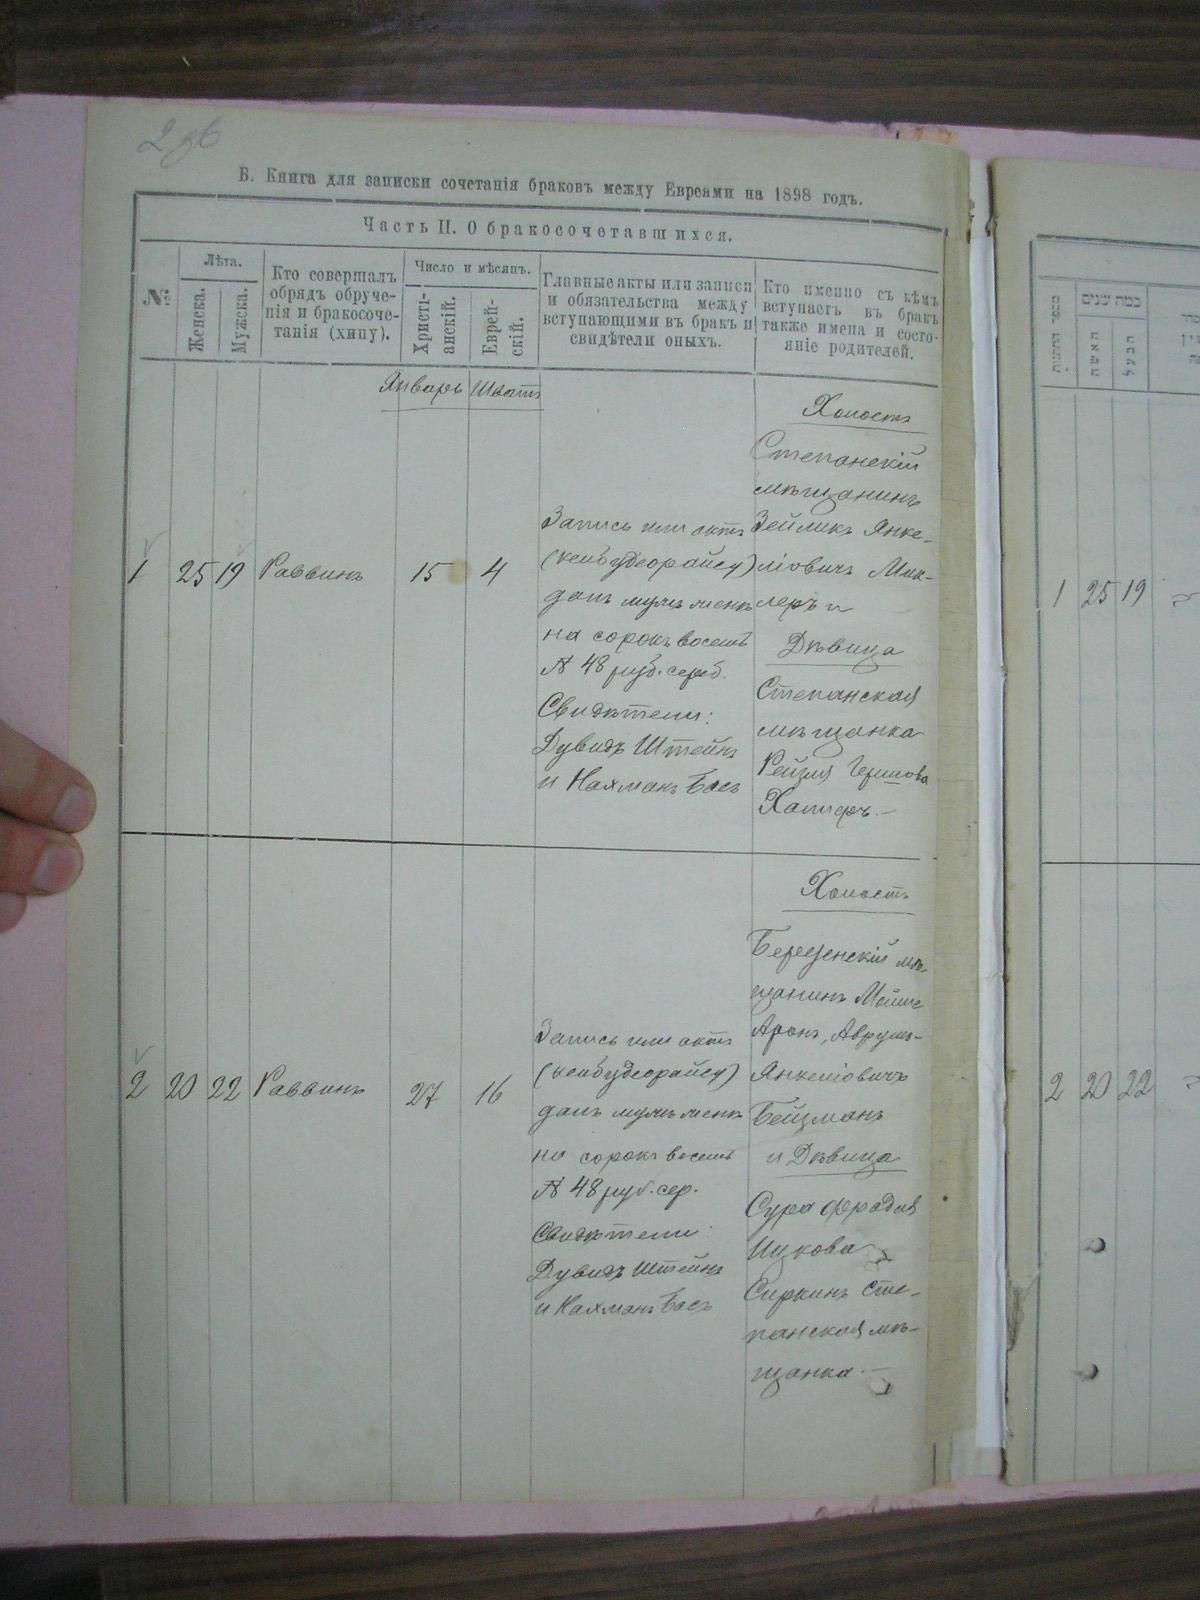 Б. Книга для записки сочетанія браковъ между Евреами на 1898 годъ.
Часть II. О бракосочетавшихся.
№.
Лѣта.
Женска.
Мужска.
Кто совершалъ
обрядъ обруче-
нія и бракосоче-
танія (хипу).
Число и мѣсяцъ.
Христі-
анскій.
Еврей-
скій.
Главные акты или записи
и обязательства между
вступающими въ бракъ и
свидѣтели оныхъ.
Кто именно съ кѣмъ
вступаетъ въ бракъ
также имена и состо-
яніе родителей.
Январь Шватъ
1 25 19 Раввинъ 15 4
Запись или актъ
(кейбудеорайсу)
данъ мужъ женѣ
на сорокъ восемь
№ 48 руб. сереб.
Свидѣтели:
Дувидъ Штейнъ
и Нахманъ Басъ
Холостъ
Степанскій
мѣщанинъ
Зейликъ Янке-
ліовичъ Мик-
леръ и
Дѣвица
Степанская
мѣщанка
Рейзля Гершова
Халифъ.—
2 20 22 Раввинъ 27 16
Запись или актъ
(кейбудеорайсу)
данъ мужъ женѣ
на сорокъ восемь
№ 48 руб. сер.
Свидѣтели:
Дувидъ Штейнъ
и Нахманъ Басъ
Холостъ
Березенскій мѣ-
щанинъ Мойше
Аронъ, Аврумъ-
Янкеліовичъ
Бейзманъ
и Дѣвица
Сура Фрадля
Ицкова
Сиркинъ Сте-
панская мѣ-
щанка.—
מספר החתנות
כמה שנים
האשה
הבעל
1 25 19
2 20 22